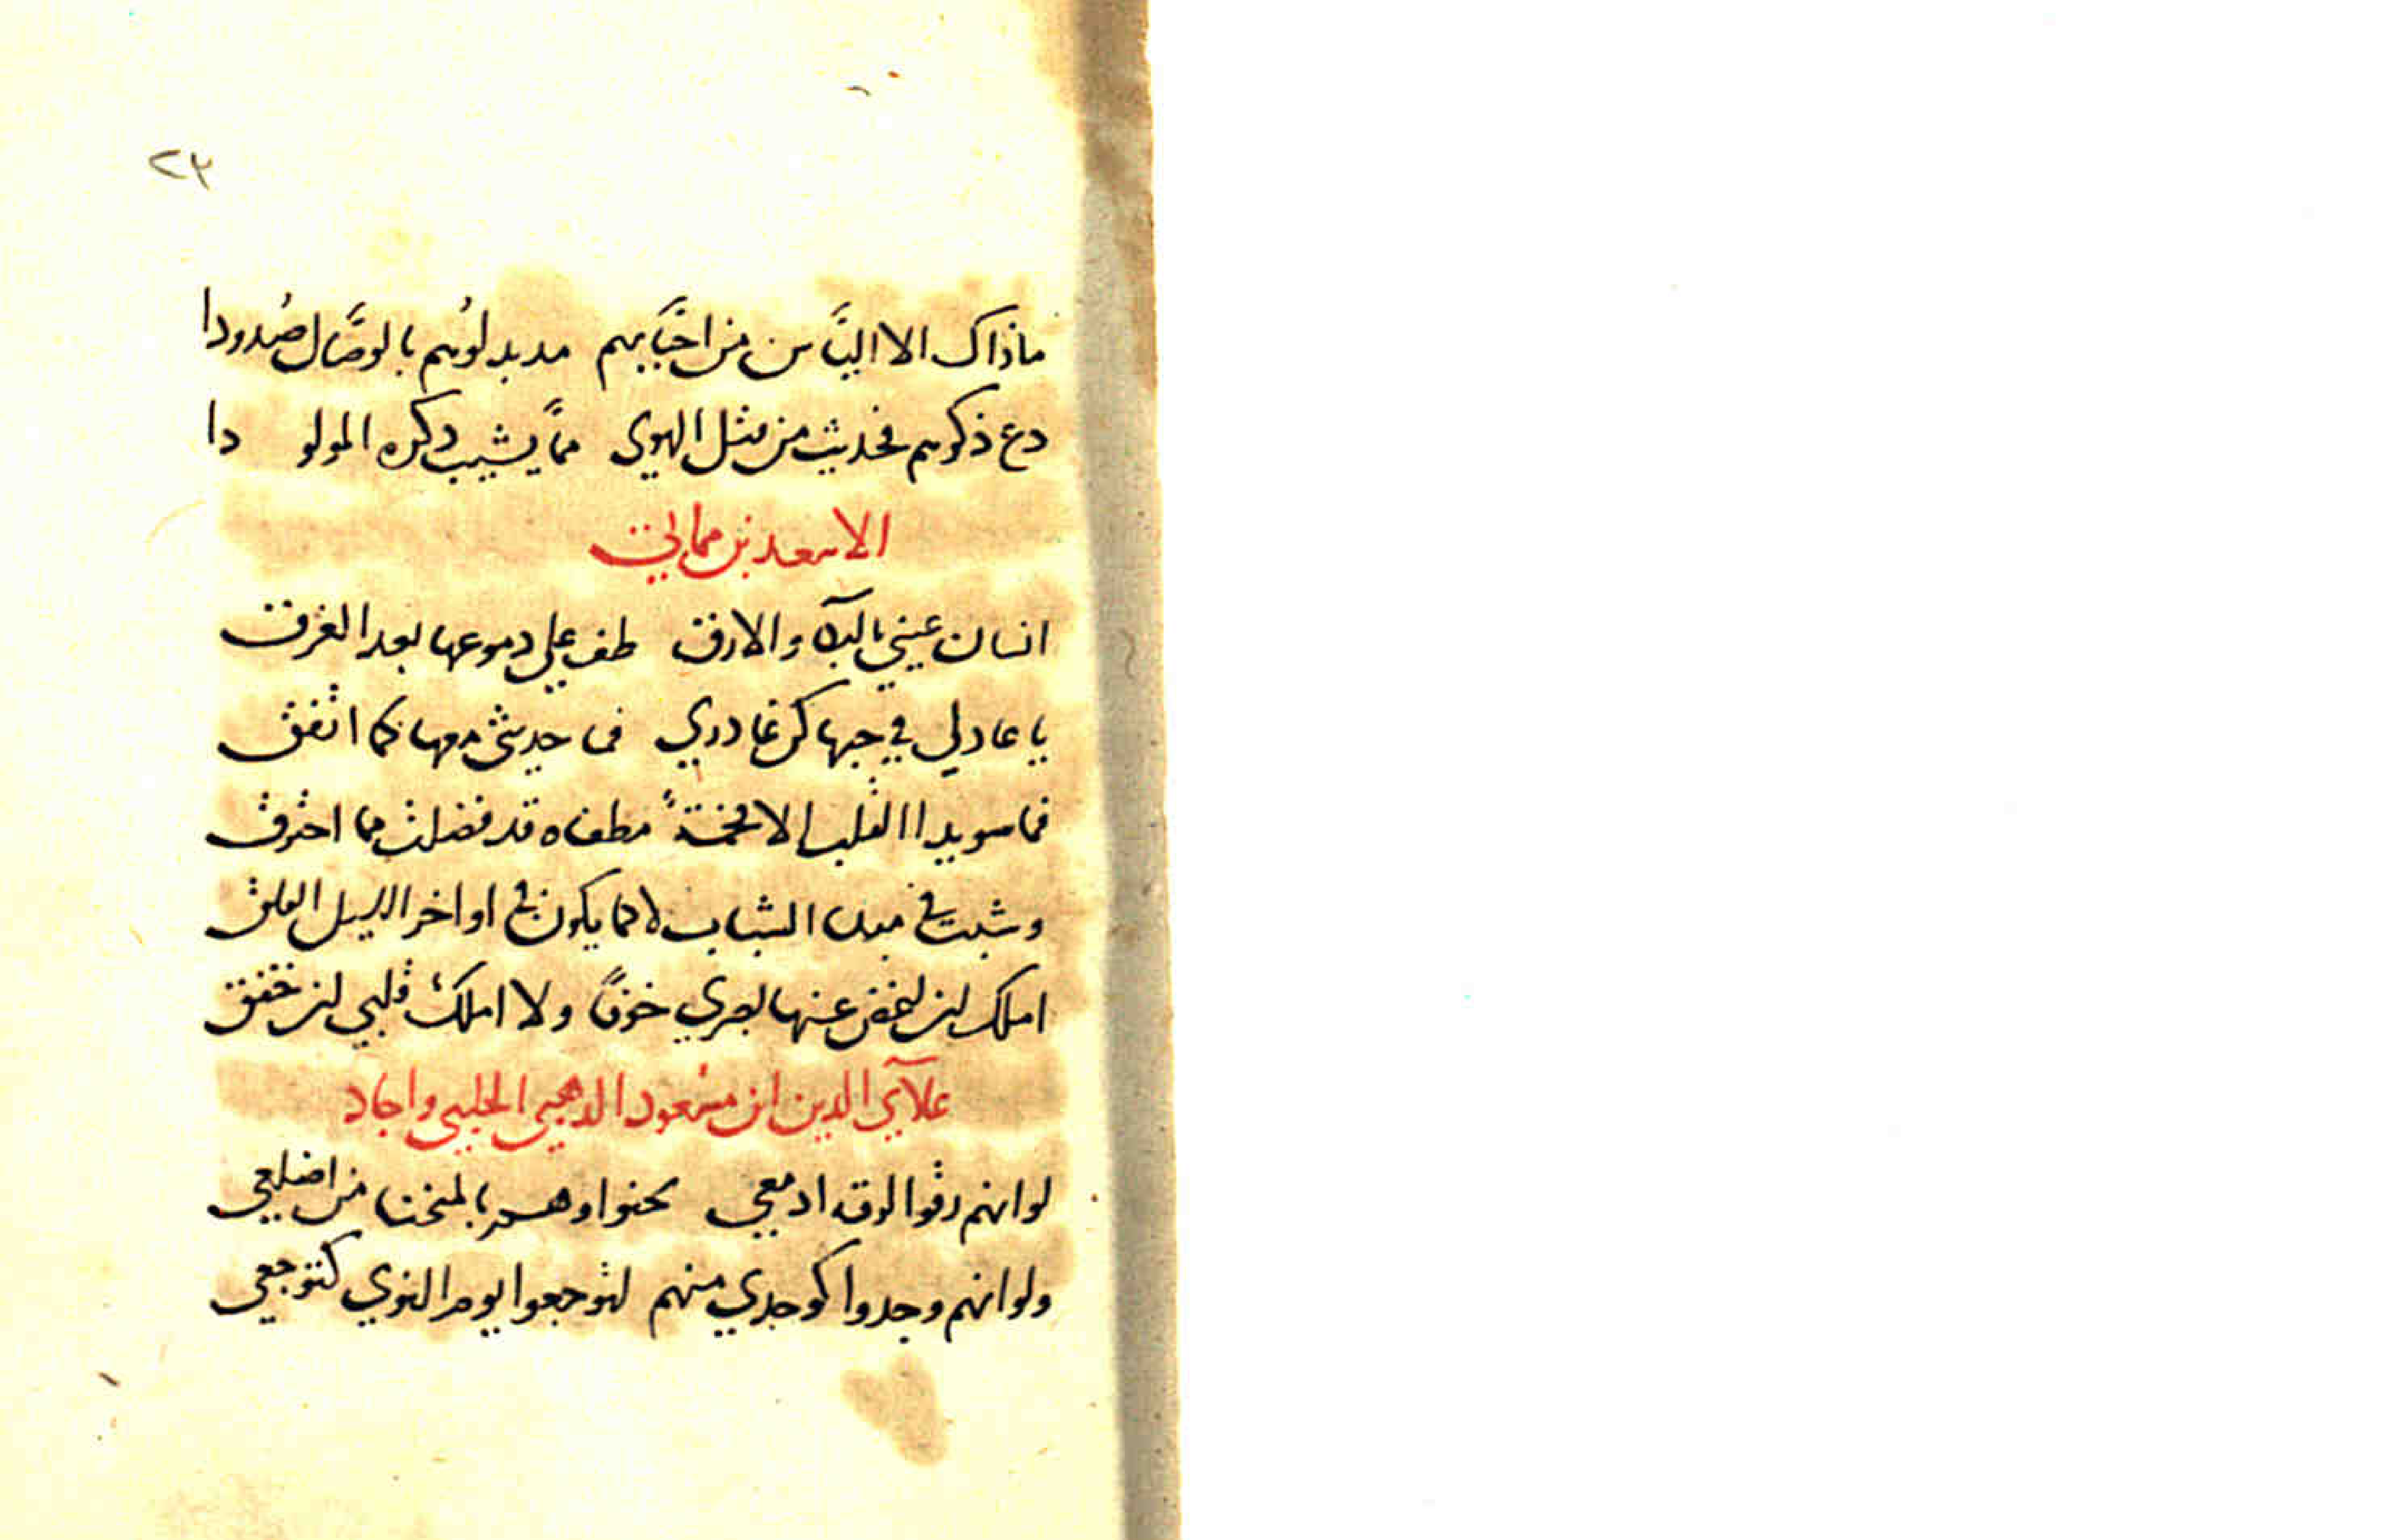 ٢٣
ماذاك الا الياس من احبابهم مد بدلوهم بالوصال صدودا
دع ذكرهم فحديث من مثل الهوي مما يشيب ذكره المولودا
الاسعد بن مماتي
انسان عيني بالبكا والارق طف علي دموعها بعد الغرق
يا عادلي في حبها كن غادري فما حديثي معها كما اتفق
فما سويدا القلب الا فحمة مطفاه قد فضلت مما احترق
وشبت في الشباب لا كما يكون في اواخر الليل الفلق
املك ان اغض عنها بصري خوفا ولا املك قلبي ان خفق
علآي الدين ابن مسعود الحلبي واجاد
لو انهم رقوا لرقه ادمعي من اضلعي
ولو انهم وجدوا كوجدي منهم لتوجعوا يوم النوي كتوجعي